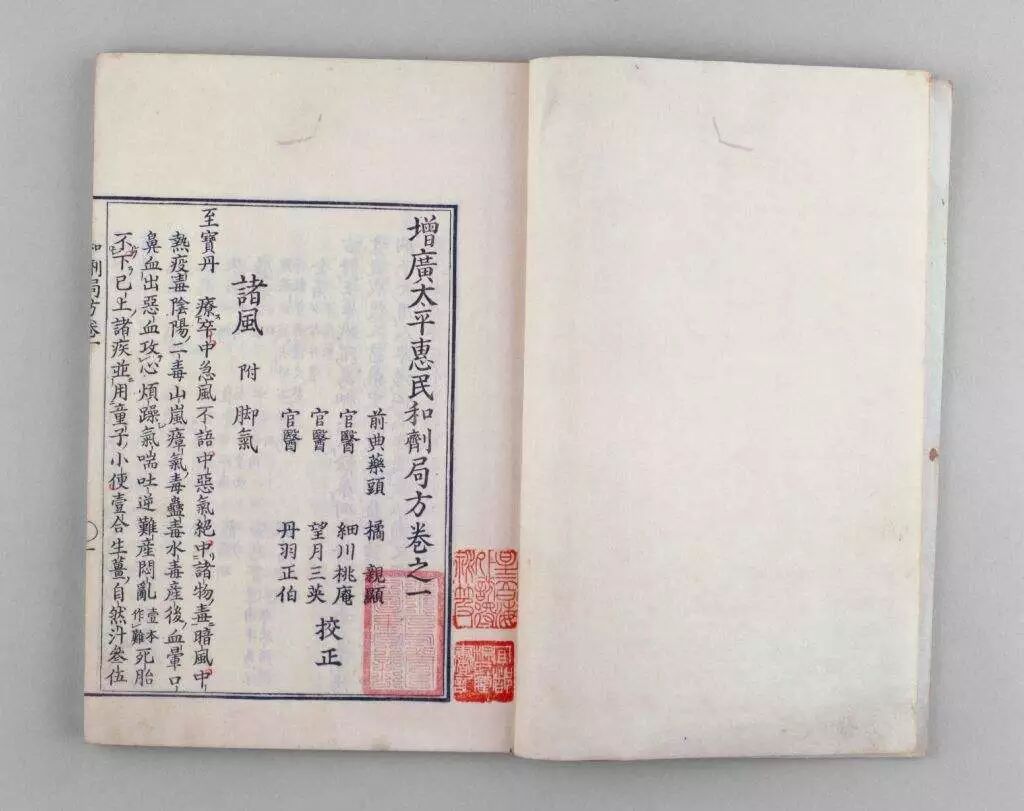 增廣太平惠民和劑局方卷之一
前典藥頭 橘 親顯
官醫 細川桃庵
官醫 望月三英
官醫 丹羽正伯
挍正
諸風 附 脚氣
至寶丹 療卒中急風不語中惡氣絕中諸物毒暗風中
熱疫毒陰陽二毒山嵐瘴氣毒蠱毒水毒產後血暈口
鼻血出惡血攻心煩躁氣喘吐逆難產悶亂壹本作難死胎
不下已上諸疾並用童子小便壹合生薑自然汁叁伍
和劑局方卷一